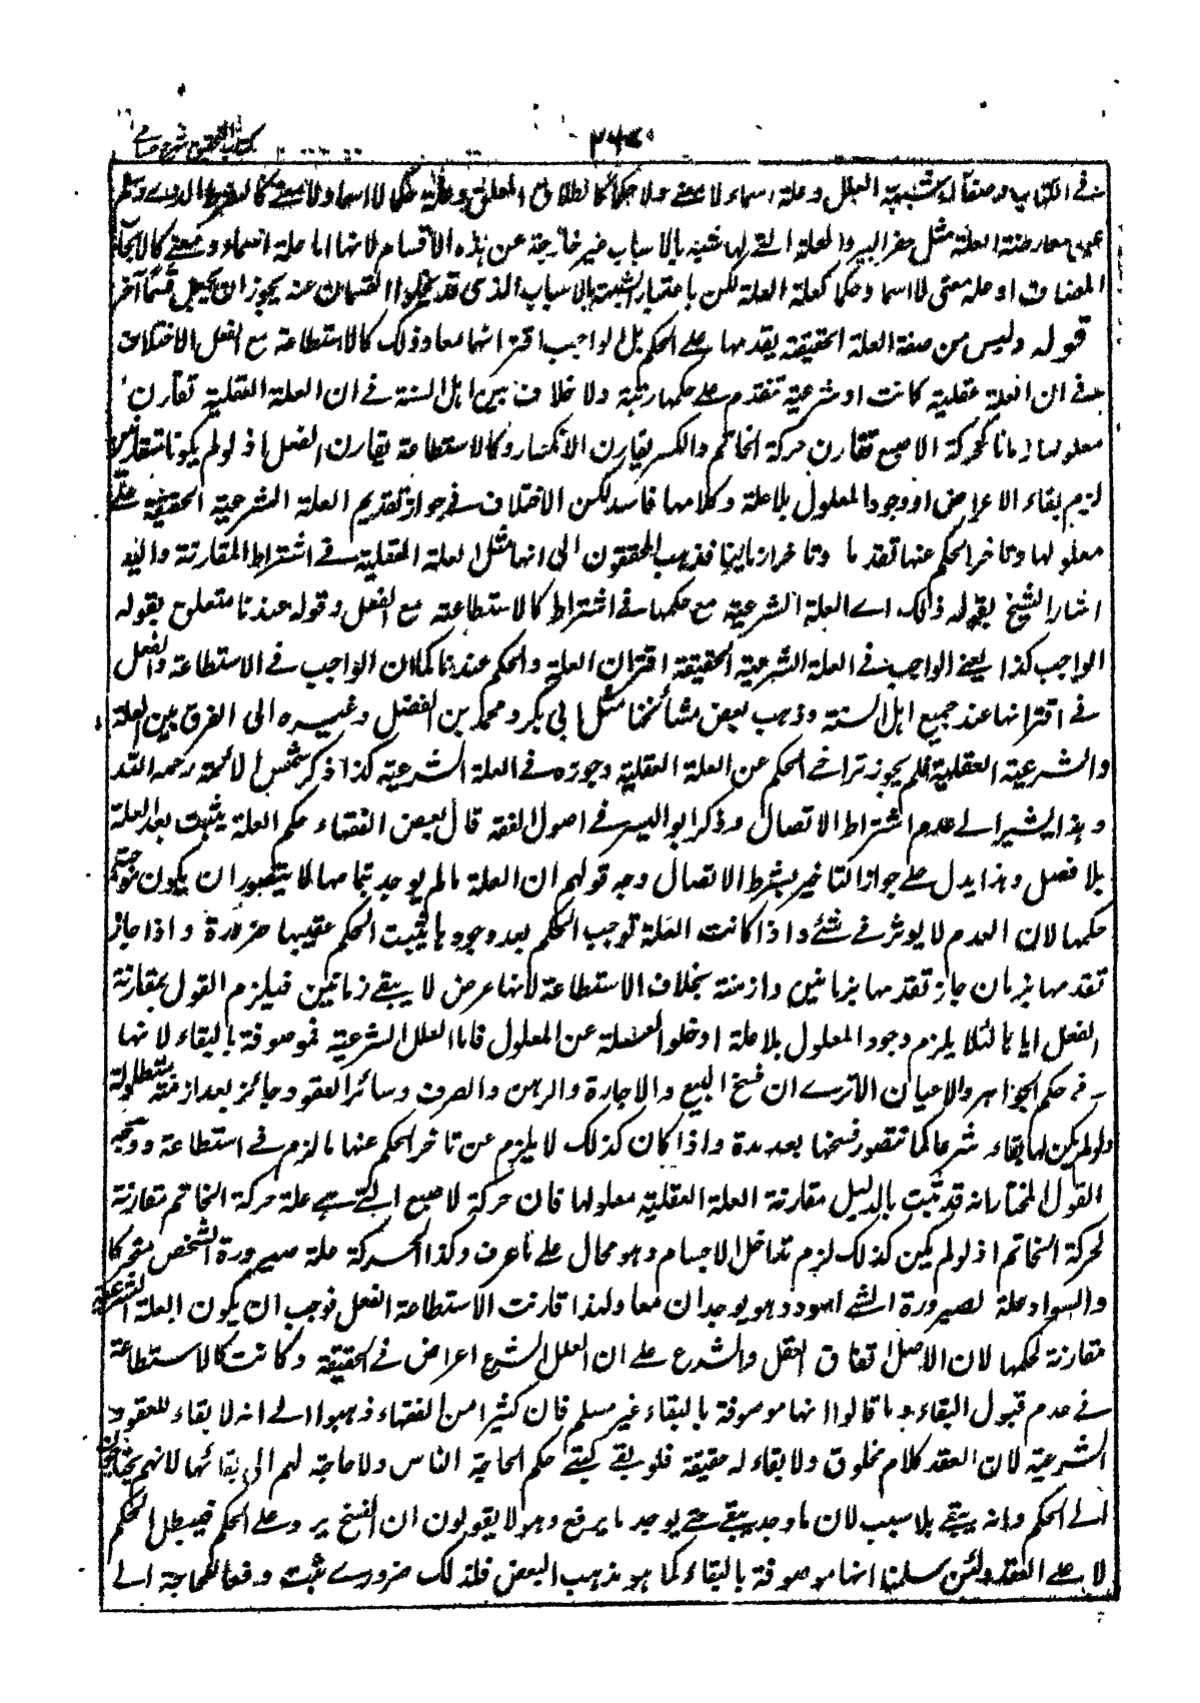 ٢٦٤
كتاب التحقيق شرح حسامي
في الكتاب وصفا له شبهة العلل وعلة اسما ولا معنى ولا حكما كالطلاق المعلق وعلة حكما لا اسما ولا معنى كالشرط الذي سلم
عن معارضة العلة مثل حفر البير والعلة التي لها شبه بالاسباب غير خارجة عن هذه الاقسام لانها اما علة اسما ومعنى كالايجاب
المضاف او علة معنى لا اسما وحكما كعلة العلة لكن باعتبار الشبهة بالاسباب الذي قد يخلوا القسمان عنه يجوز ان يجعل قسما آخر
قوله وليس من صفة العلة الحقيقة تقدمها على الحكم بل الواجب اقترانهما معا وذلك كالاستطاعة مع الفعل الاختلاف
في ان العلة عقلية كانت او شرعية تتقدم على حكمها رتبة ولا خلاف بين اهل السنة في ان العلة العقلية تقارن
معلولها زمانا كحركة الاصبع تقارن حركة الخاتم والكسر يقارن الانكسار وكالاستطاعة يقارن الفعل اذ لو لم يكونا متقارنين
لزم بقاء الاعراض او وجود المعلول بلا علة وكلاهما فاسد لكن الاختلاف في جواز تقديم العلة الشرعية الحقيقة على
معلولها وتاخر الحكم عنها تقدما وتاخرا زمانيا فذهب المحققون الى انها مثل العلة العقلية في اشتراط المقارنة واليه
اشار الشيخ بقوله ذلك اے العلة الشرعية مع حكمها في اشتراط كالاستطاعة مع الفعل وقوله عندنا متعلق بقوله
الواجب كذا يعني الواجب في العلة الشرعية الحقيقة اقتران العلة والحكم عندنا كما ان الواجب في الاستطاعة والفعل
في اقترانها عند جميع اهل السنة وذهب بعض مشائخنا مثل ابي بكر ومحمد بن الفضل وغيره الى الفرق بين العلة
والشرعية العقلية فلم يجوز تراخي الحكم عن العلة العقلية وجوزه في العلة الشرعية كذا ذكر شمس الائمة رحمه الله
وهذا يشير الى عدم اشتراط الاتصال وذكر ابو اليسر في اصول الفقه قال بعض الفقهاء حكم العلة يثبت بعد العلة
بلا فصل وهذا يدل على جواز التاخير بشرط الاتصال وجه قولهم ان العلة ما لم يوجد بتمامها لا يتصور ان يكون موجبة
حكمها لان العدم لا يوثر في شئ واذا كانت العلة توجب الحكم بعد وجودها يثبت الحكم عقيبها ضرورة واذا جاز
تقدمها بزمان جاز تقدمها بزمانين وازمنة بخلاف الاستطاعة لانها عرض لا يبقى زمانين فيلزم القول بمقارنة
الفعل اياها لئلا يلزم وجود المعلول بلا علة او خلو العلة عن المعلول فاما العلل الشرعية فموصوفة بالبقاء لانها
في حكم الجواهر والاعيان الا ترى ان فسخ البيع والاجارة والرهن والصرف وسائر العقود جائز بعد ازمنة متطاولة
ولو لم يكن لها بقاء شرعا لما تتصور فسخها بعد مدة واذا كان كذلك لا يلزم من تاخر الحكم عنها ما لزم في استطاعة ووجه
القول المختار انه قد ثبت بالدليل مقارنة العلة العقلية معلولها فان حركة لاصبع التي هي علة حركة الخاتم مقارنة
لحركة الخاتم اذ لو لم يكن كذلك لزم تداخل الاجسام وهو محال على ما عرف وكذا الحركة علة صيرورة الشخص متحركا
والسواد علة لصيرورة الشئ اسود وهو يوجدان معا ولهذا قارنت الاستطاعة الفعل فوجب ان يكون العلة الشرعية
مقارنة لحكمها لان الاصل اتفاق العقل والشرع على ان العلل الشرع اعراض في الحقيقة وكانت كالاستطاعة
في عدم قبول البقاء وما قالوا انها موصوفة بالبقاء غير مسلم فان كثيرا من الفقهاء ذهبوا الى انه لا بقاء للعقود
الشرعية لان العقد كلام مخلوق ولا بقاء له حقيقة فلو بقى يبقى حكم الحاجة الناس ولا حاجة لهم الى بقائها لانهم يحتاجون
الى الحكم وانه يبقى بلا سبب لان ما وجد يبقى حتى يوجد ما يرفع وهو لا يقولون ان الفسخ يرد على الحكم فيبطل الحكم
لا على العقد ولئن سلمنا انها موصوفة بالبقاء كما هو مذهب البعض فلذلك ضروري ثبت دفعا للحاجة الى